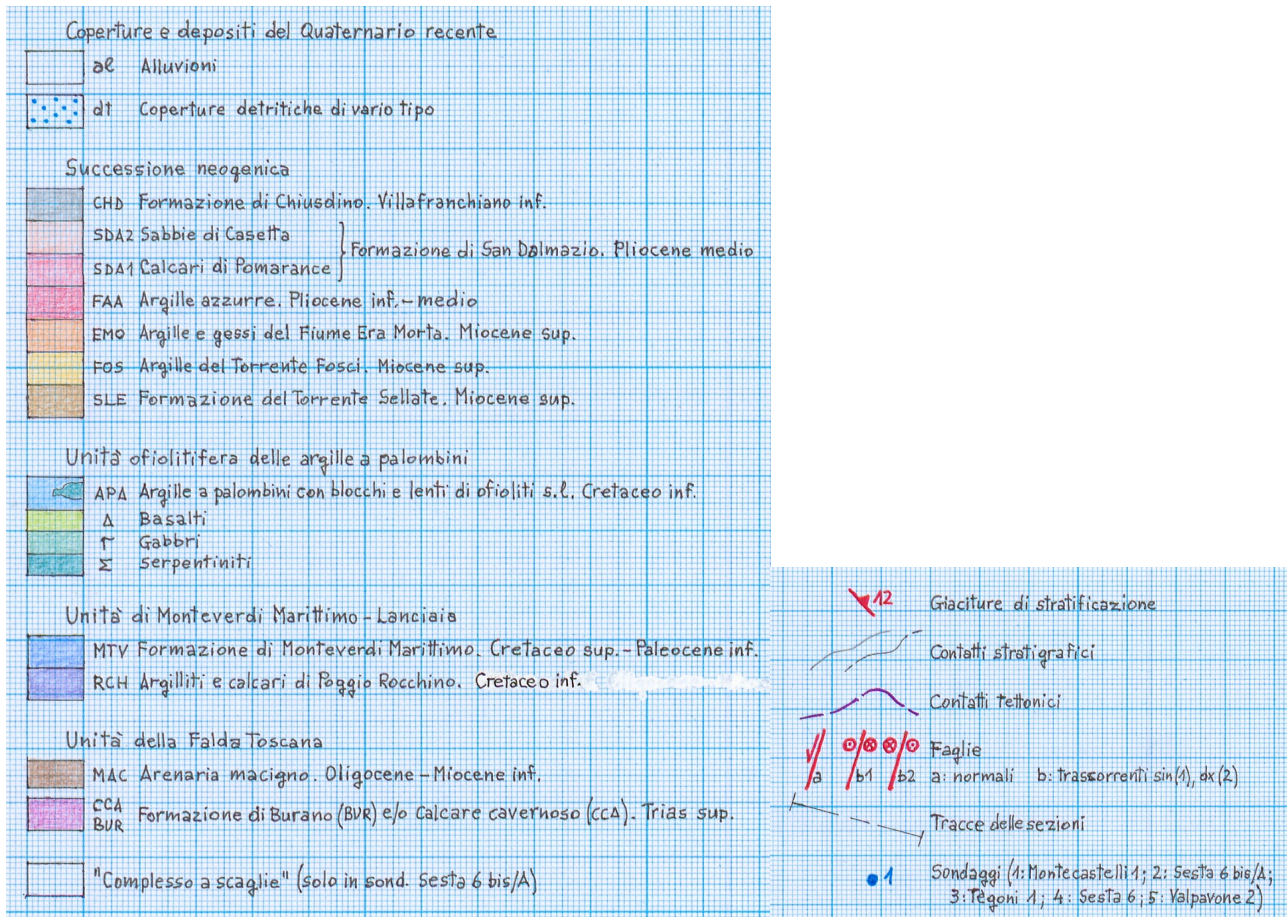 Coperture e depositi del Quaternario recente
al Alluvioni
dt Coperture detritiche di vario tipo
Successione neogenica
CHD Formazione di Chiusdino. Villafranchiano inf.
SDA2 Sabbie di Casetta
Formazione di San Dalmazio. Pliocene medio
SDA1 Calcari di Pomarance
FAA Argille azzurre. Pliocene inf.-medio
EMO Argille e gessi del Fiume Era Morta. Miocene sup.
FOS Argille del Torrente Fosci. Miocene sup.
SLE Formazione del Torrente Sellate. Miocene sup.
Unità ofiolitifera delle argille a palombini
APA Argille a palombini con blocchi e lenti di ofioliti s.l. Cretaceo inf.
Δ Basalti
Γ Gabbri
Σ Serpentiniti
Unità di Monteverdi Marittimo - Lanciaia
MTV Formazione di Monteverdi Marittimo. Cretaceo sup. - Paleocene inf.
RCH Argilliti e calcari di Poggio Rocchino. Cretaceo inf.
Unità della Falda Toscana
MAC Arenaria macigno. Oligocene - Miocene inf.
CCA
BUR Formazione di Burano (BUR) e/o Calcare cavernoso (CCA). Trias sup.
"Complesso a scaglie" (solo in sond. Sesta 6 bis/A)
12 Giaciture di stratificazione
Contatti stratigrafici
Contatti tettonici
Faglie
a b1 b2 a: normali b: trascorrenti sin(1), dx(2)
Tracce delle sezioni
1 Sondaggi (1: Montecastelli 1; 2: Sesta 6 bis/A;
3: Tegoni 1; 4: Sesta 6; 5: Valpavone 2)